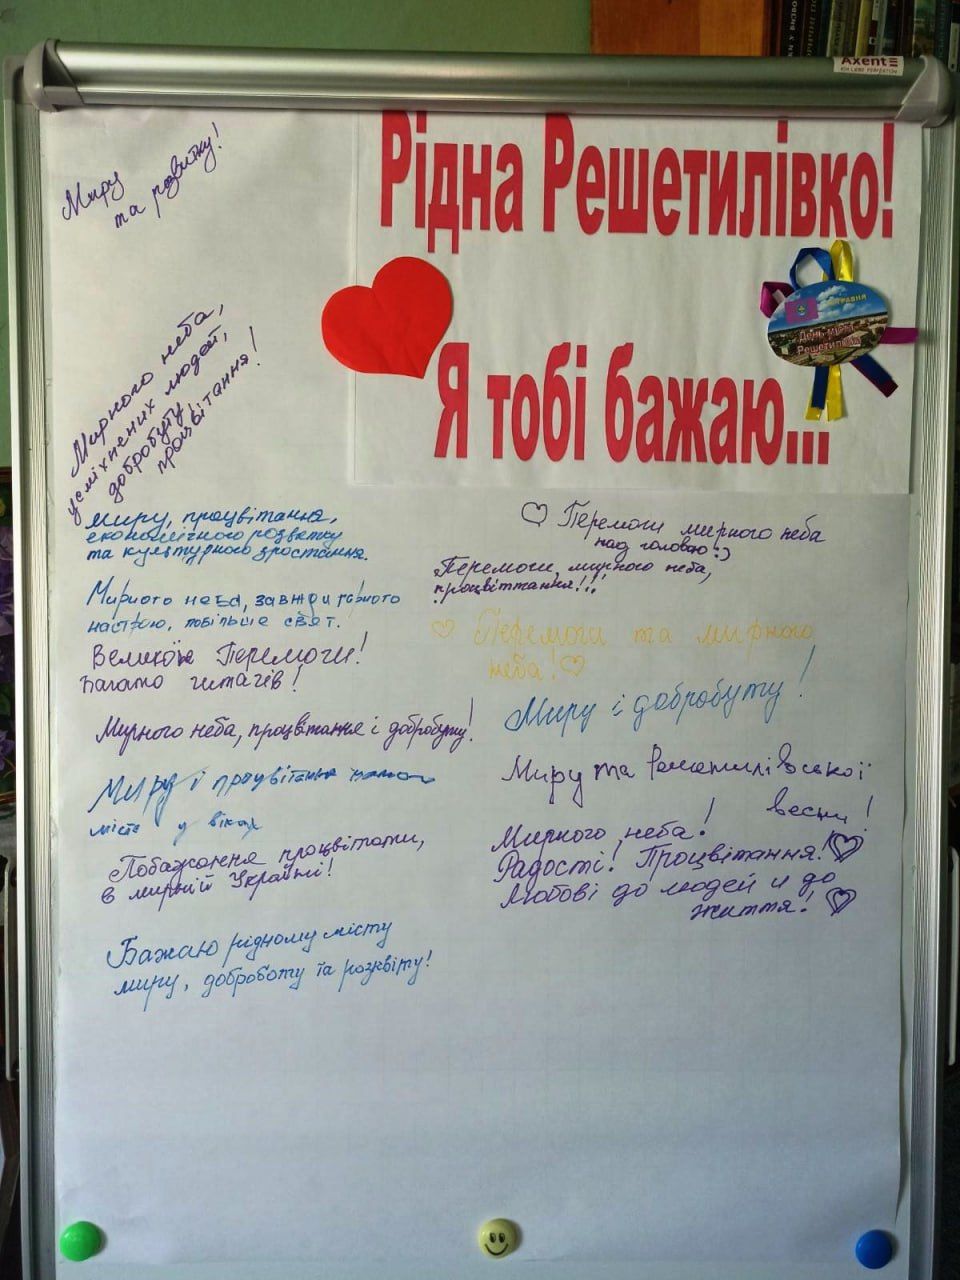 Axent
Рідна Решетилівко!
Я тобі бажаю...
День міста
Решетилівка
Миру
та розвитку!
Мирного неба,
усміхнених людей,
добробуту,
процвітання!
миру, процвітання,
економічного розвитку
та культурного зростання.
Мирного неба, завжди гарного
настрою, побільше свят.
Великої Перемоги!
Багато читачів!
Мирного неба, процвітання і добробуту!
Миру і процвітання
місте у віках
Побажання процвітати,
в мирній Україні!
Бажаю рідному місту
миру, доброботу та розквіту!
Перемоги мирного неба
над головою!:)
Перемоги, мирного неба,
процвіттання!!!
Перемоги та мирного
неба!
Миру і добробуту!
Миру та Решетилівської
весни!
Мирного неба!
Радості! Процвітання!
Любові до людей и до
життя!